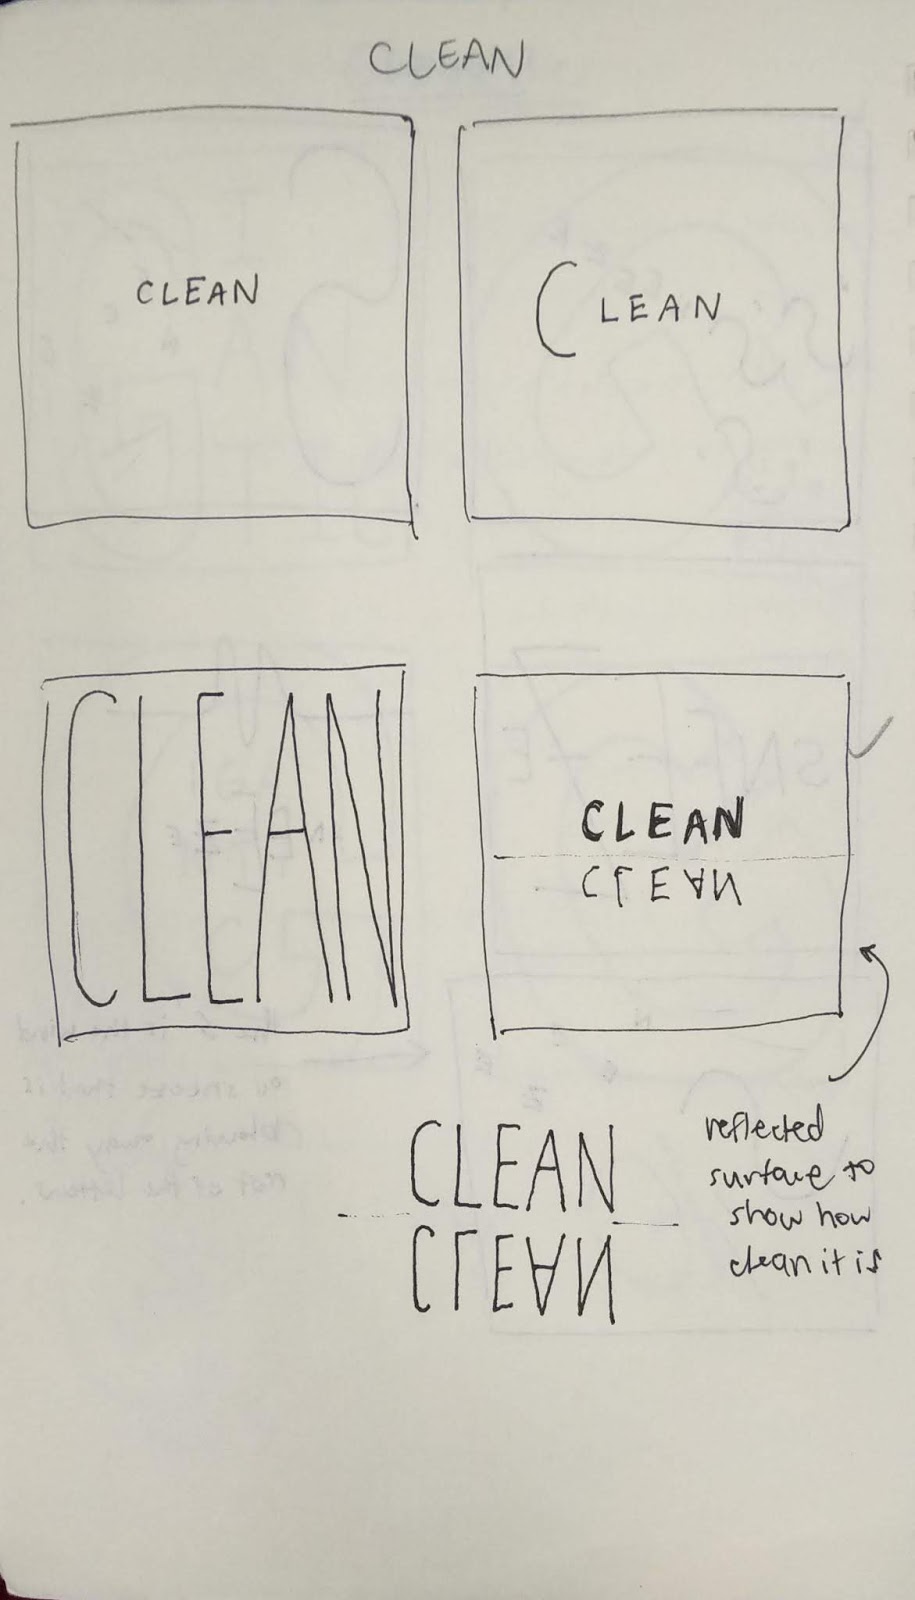 CLEAN
CLEAN
CLEAN
CLEAN
CLEAN
CLEAN
CLEAN
CLEAN
reflected
surface to
show how
clean it is